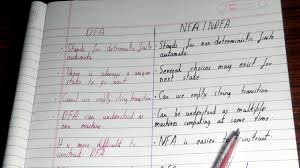 DFA
NFA / NDFA
• Stands for deterministic finite
automata
• Stands for non-deterministic finite
automata
• There is always a unique
state to go next
• Several choices may exist for
next state
• Cannot use empty string transition
• Can use empty string transition
• DFA can understand as
one machine
• Can be understand as multiple
machines computing at same time
• It is more difficult to
construct DFA
• NFA is easier to construct.